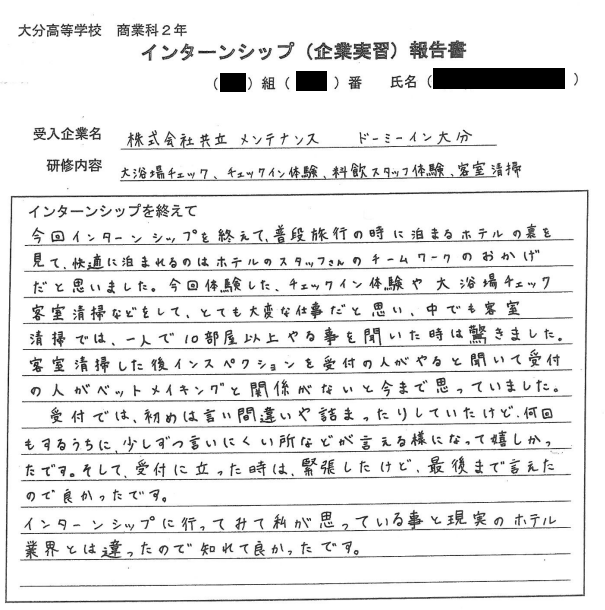 大分高等学校 商業科２年
インターンシップ（企業実習）報告書
（ ）組（ ）番 氏名（ ）
受入企業名 株式会社共立メンテナンス ドーミーイン大分
研修内容 大浴場チェック、チェックイン体験、料飲スタッフ体験、客室清掃
インターンシップを終えて
今回インターンシップを終えて、普段旅行の時に泊まるホテルの裏を
見て、快適に泊まれるのはホテルのスタッフさんのチームワークのおかげ
だと思いました。今回体験した、チェックイン体験や大浴場チェック
客室清掃などをして、とても大変な仕事だと思い、中でも客室
清掃では、一人で10部屋以上やる事を聞いた時は驚きました。
客室清掃した後インスペクションを受付の人がやると聞いて受付
の人がベットメイキングと関係がないと今まで思っていました。
受付では、初めは言い間違いや詰まったりしていたけど、何回
もするうちに、少しずつ言いにくい所などが言える様になって嬉しかっ
たです。そして、受付に立った時は、緊張したけど、最後まで言えた
ので良かったです。
インターンシップに行ってみて私が思っている事と現実のホテル
業界とは違ったので知れて良かったです。